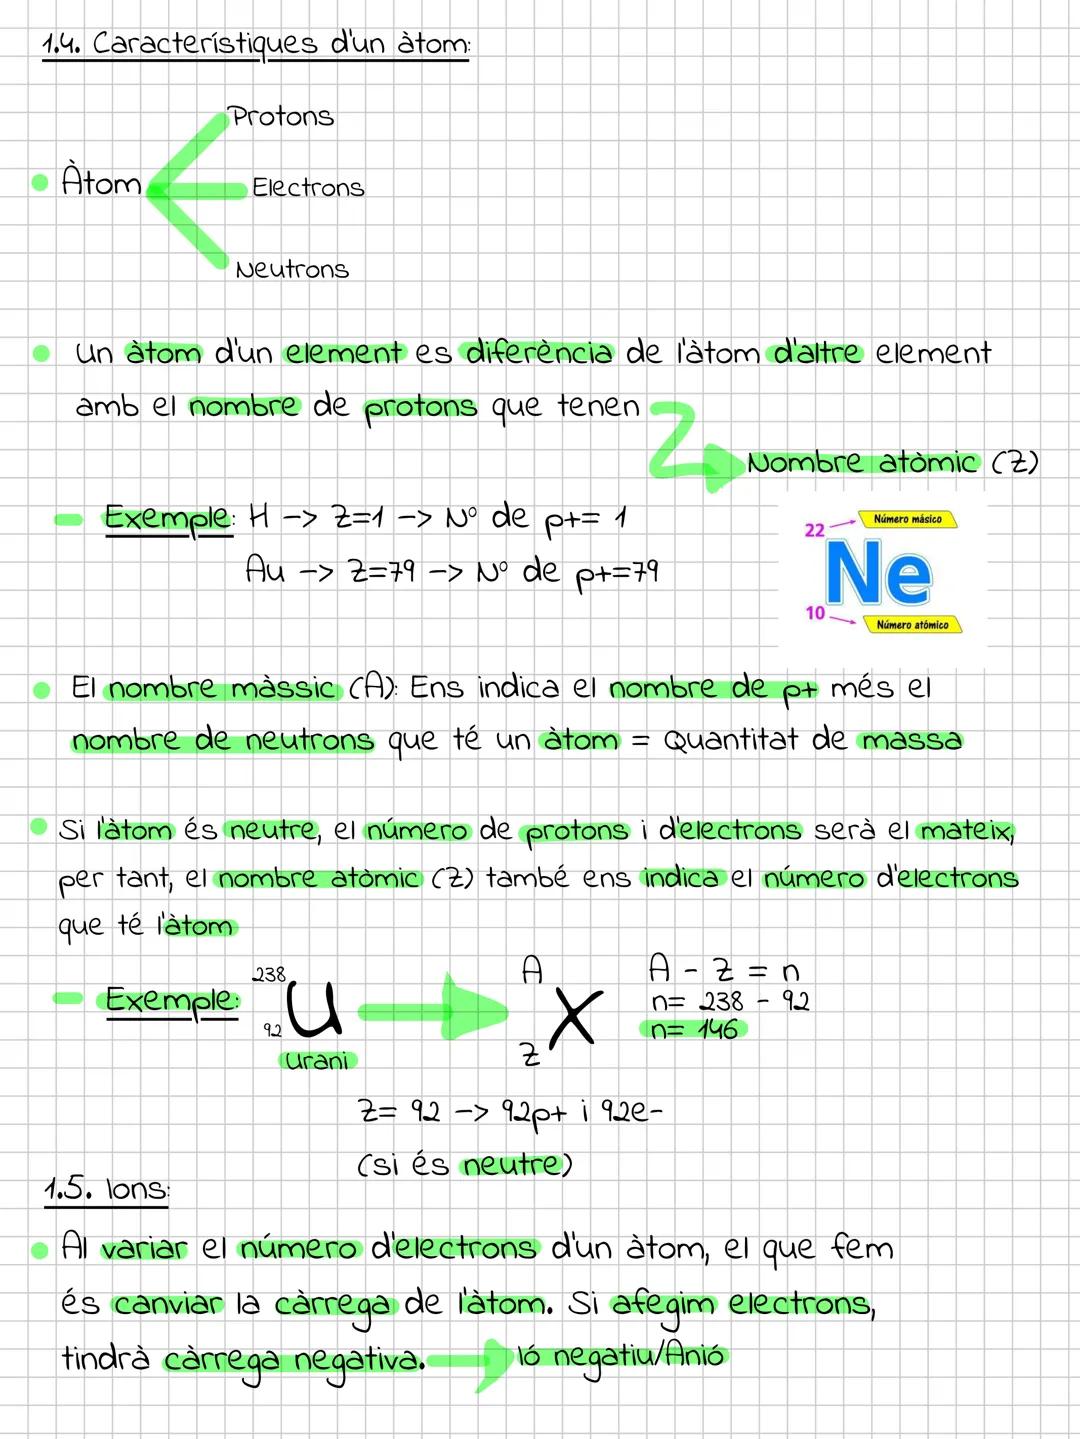 1.4. Característiques d'un àtom:
Protons
Àtom
Electrons
Neutrons
Un àtom d'un element es diferència de l'àtom d'altre element
amb el nombre de protons que tenen
Nombre atòmic (Z)
Exemple: H -> Z=1 -> Nº de p+= 1
Au -> Z=79 -> Nº de p+=79
22 Número másico
Ne
10 Número atómico
El nombre màssic (A): Ens indica el nombre de p+ més el
nombre de neutrons que té un àtom = Quantitat de massa
Si l'àtom és neutre, el número de protons i d'electrons serà el mateix,
per tant, el nombre atòmic (Z) també ens indica el número d'electrons
que té l'àtom
Exemple: 238 92 U
Urani
A Z X
A - Z = n
n= 238 - 92
n= 146
Z= 92 -> 92p+ i 92e-
(si és neutre)
1.5. Ions:
Al variar el número d'electrons d'un àtom, el que fem
és canviar la càrrega de l'àtom. Si afegim electrons,
tindrà càrrega negativa. Ió negatiu/Anió